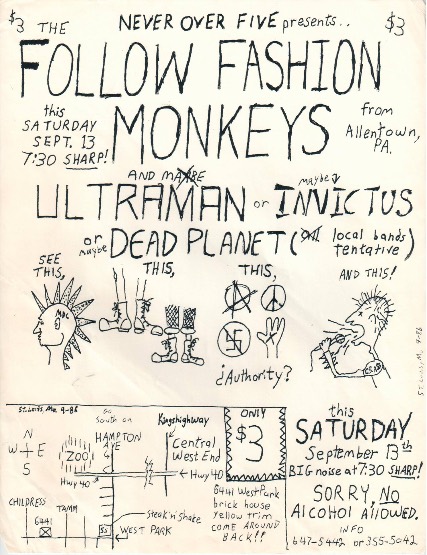 $3 THE NEVER OVER FIVE presents.. $3
FOLLOW FASHION
MONKEYS
this
SATURDAY
SEPT. 13
7:30 SHARP!
from
Allentown,
PA.
AND MAYBE
ULTRAMAN or maybe INVICTUS
or maybe DEAD PLANET (all local bands tentative)
SEE THIS,
THIS,
THIS,
AND THIS!
MDC
¿Authority?
St. Louis, Mo, 9-86
St. Louis, Mo. 9-86
N
W E
S
ZOO
Go
South on
HAMPTON
AVE
Kingshighway
Central
West End
Hwy 40
Hwy 40
CHILDRESS
TAMM
6441
steak'n'shake
WEST PARK
ONLY
$3
6441 West Park
brick house
yellow trim
COME AROUND
BACK!!
this
SATURDAY
September 13th
BIG noise at 7:30 SHARP!
SORRY, NO
ALCOHOL ALLOWED.
INFO
647-5442 or 355-5042